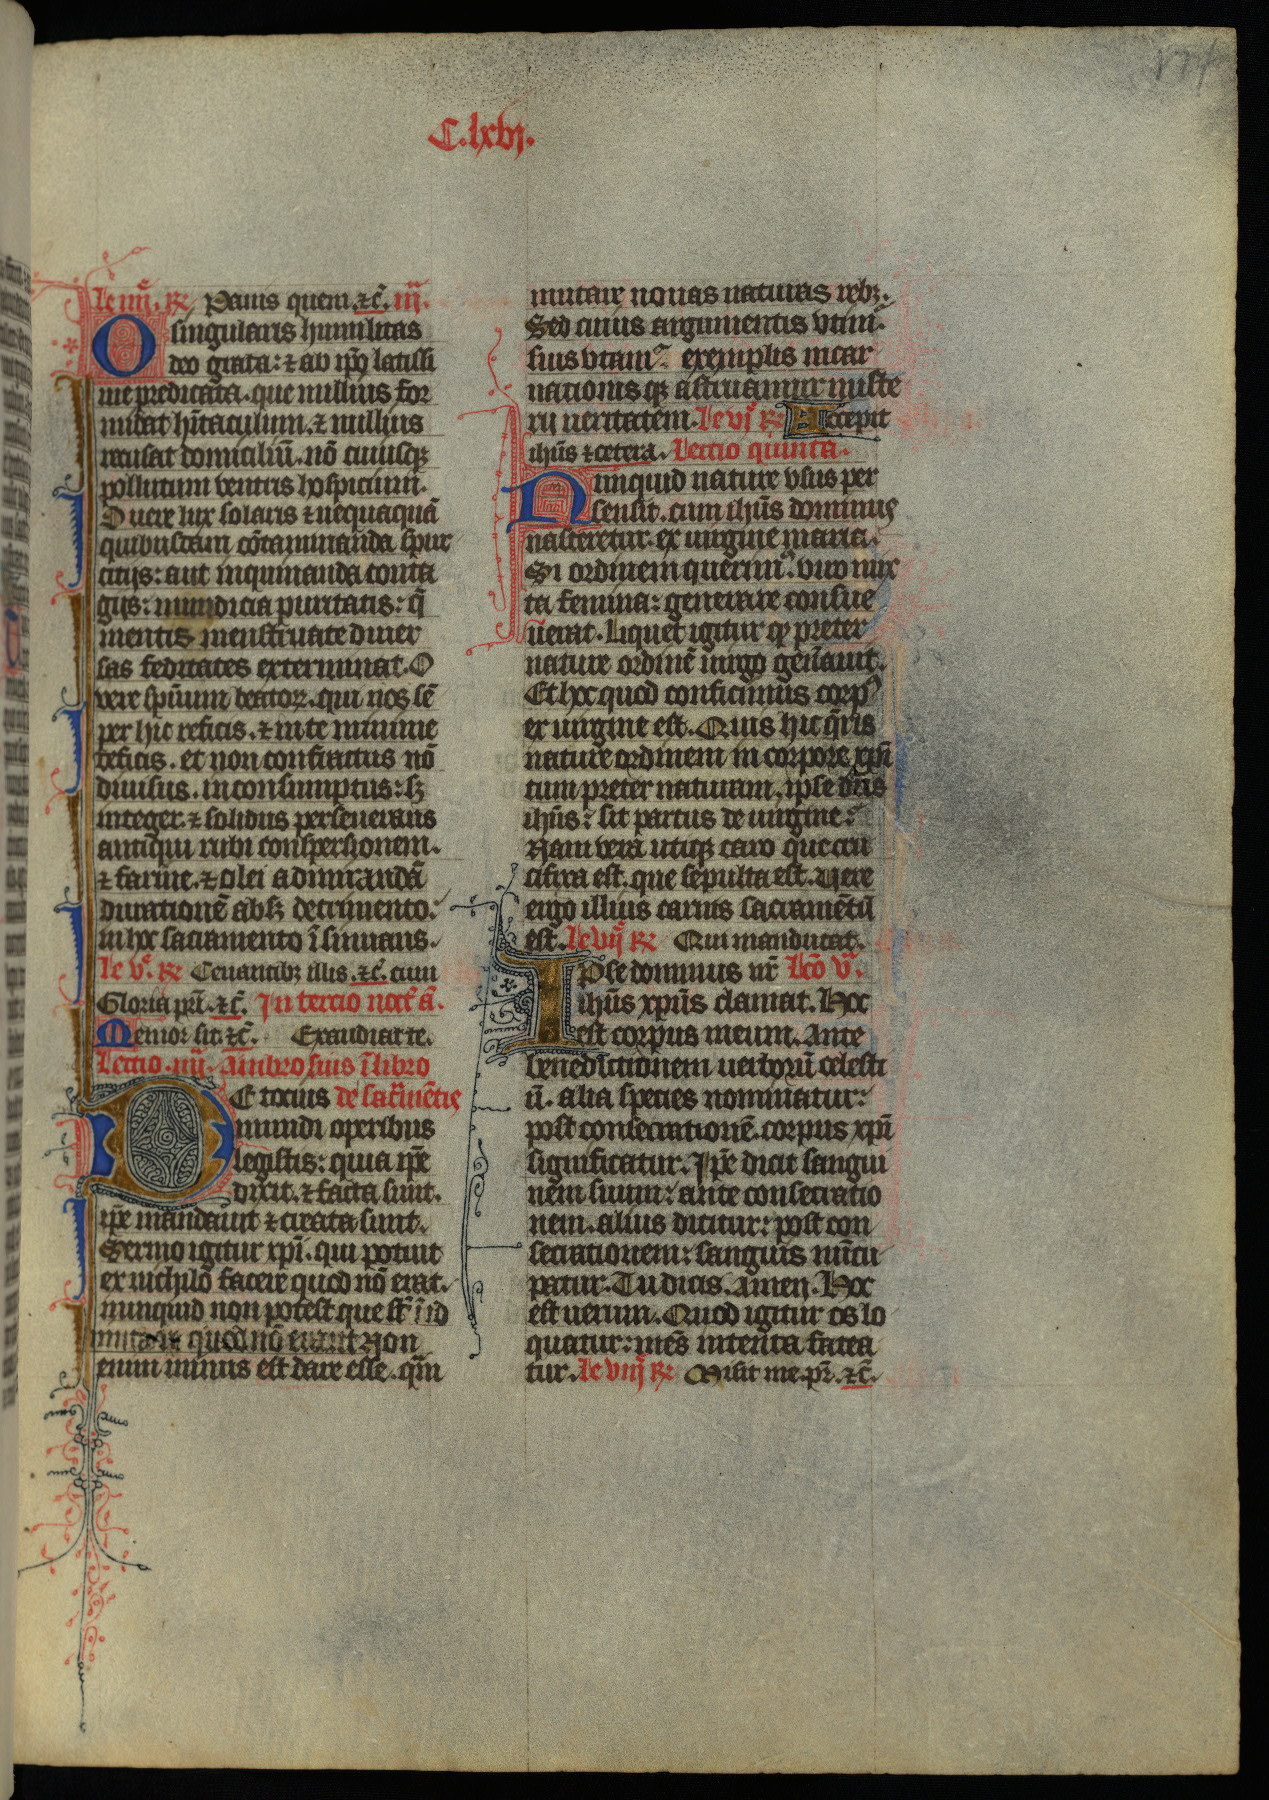 C.lxvj.
le iiij. R̃ Panis quem ⁊c̃. iij.
O singularis humilitas
deo grata: ⁊ ab ip̃o latissi
me predicata. que nullius for
midat hĩtaculum. ⁊ nullius
recusat domiciliũ. nõ cuiusqꝫ
pollutum ventris hospicium.
O uere lux solaris ⁊ nequaquã
quibusdam cõtaminanda spur
citijs: aut inquinanda conta
gijs: mundicia puritatis: q̃
mentis menstruate diuer
sas feditates exterminat. O
vere sp̃uum beatoꝝ. qui nos sẽ
per hic reficis. ⁊ in te minime
deficis. et non confractus nõ
diuisus. inconsumptus: sꝫ
integer. ⁊ solidus perseuerans
antiqui rubi conspersionem.
⁊ farine. ⁊ olei admirandã
durationẽ absꝫ detrimento.
in hoc sacramento ĩsinuans.
le v.ᵃ R̃ Cenantibꝫ illis. ⁊c̃. cum
Gloria pr̃i. ⁊c̃. In tercio noct̃ ã.
Memor sit ⁊c̃. Exaudiat te.
Lectio. iiij. Ambrosius ĩ libro
DE tocius de sac̃mẽtis
mundi operibus
legistis: quia ip̃e
dixit. ⁊ facta sunt.
ip̃e mandauit ⁊ creata sunt.
Sermo igitur xp̃i. qui potuit
ex nichilo facere quod nõ erat.
nunquid non potest que st̃ ĩ id
mutare quod nõ erant Non
enim minus est dare esse. q̃m
mutare nouas naturas rebꝫ.
Sed cuius argumentis vtim᷑.
suis vtam᷑ exemplis incar
nationis qꝫ astruamur miste
rij ueritatem. le vj.ᵃ R̃ Accepit
ihũs ⁊cetera. Lectio quinta.
Nunquid nature vsus per
sensit. cum ihũs dominus
nasceretur ex uirgine maria.
Si ordinem querim᷒. viro mix
ta femina: generare consue
uerat. Liquet igitur ꝙ preter
nature ordinẽ uirgo geñauit.
Et hoc quod conficimus corp᷒
ex uirgine est. Quis hic q̃ris
nature ordinem in corpore xp̃i
tum preter naturam. ipse dñs
ihũs: sit partus de uirgine:
Nam vera utiqꝫ caro que cru
cifixa est. que sepulta est. Vere
ergo illius carnis sacramẽtũ
est. le vij.ᵃ R̃ Qui manducat.
IPse dominus nr̃ Lcõ vj.ᵃ
ihũs xp̃us clamat. Hoc
est corpus meum. Ante
benedictionem uerborũ celesti
ũ. alia species nominatur:
post consecrationẽ. corpus xp̃i
significatur. Ip̃e dicit sangui
nem suum: ante consecratio
nem. alius dicitur: post con
secrationem: sanguis nũcu
patur. Tu dicis. Amen. Hoc
est uerum. Quod igitur os lo
quatur: mẽs intenta fatea
tur. le viij.ᵃ R̃ Misit me. pr̃. ⁊c̃.